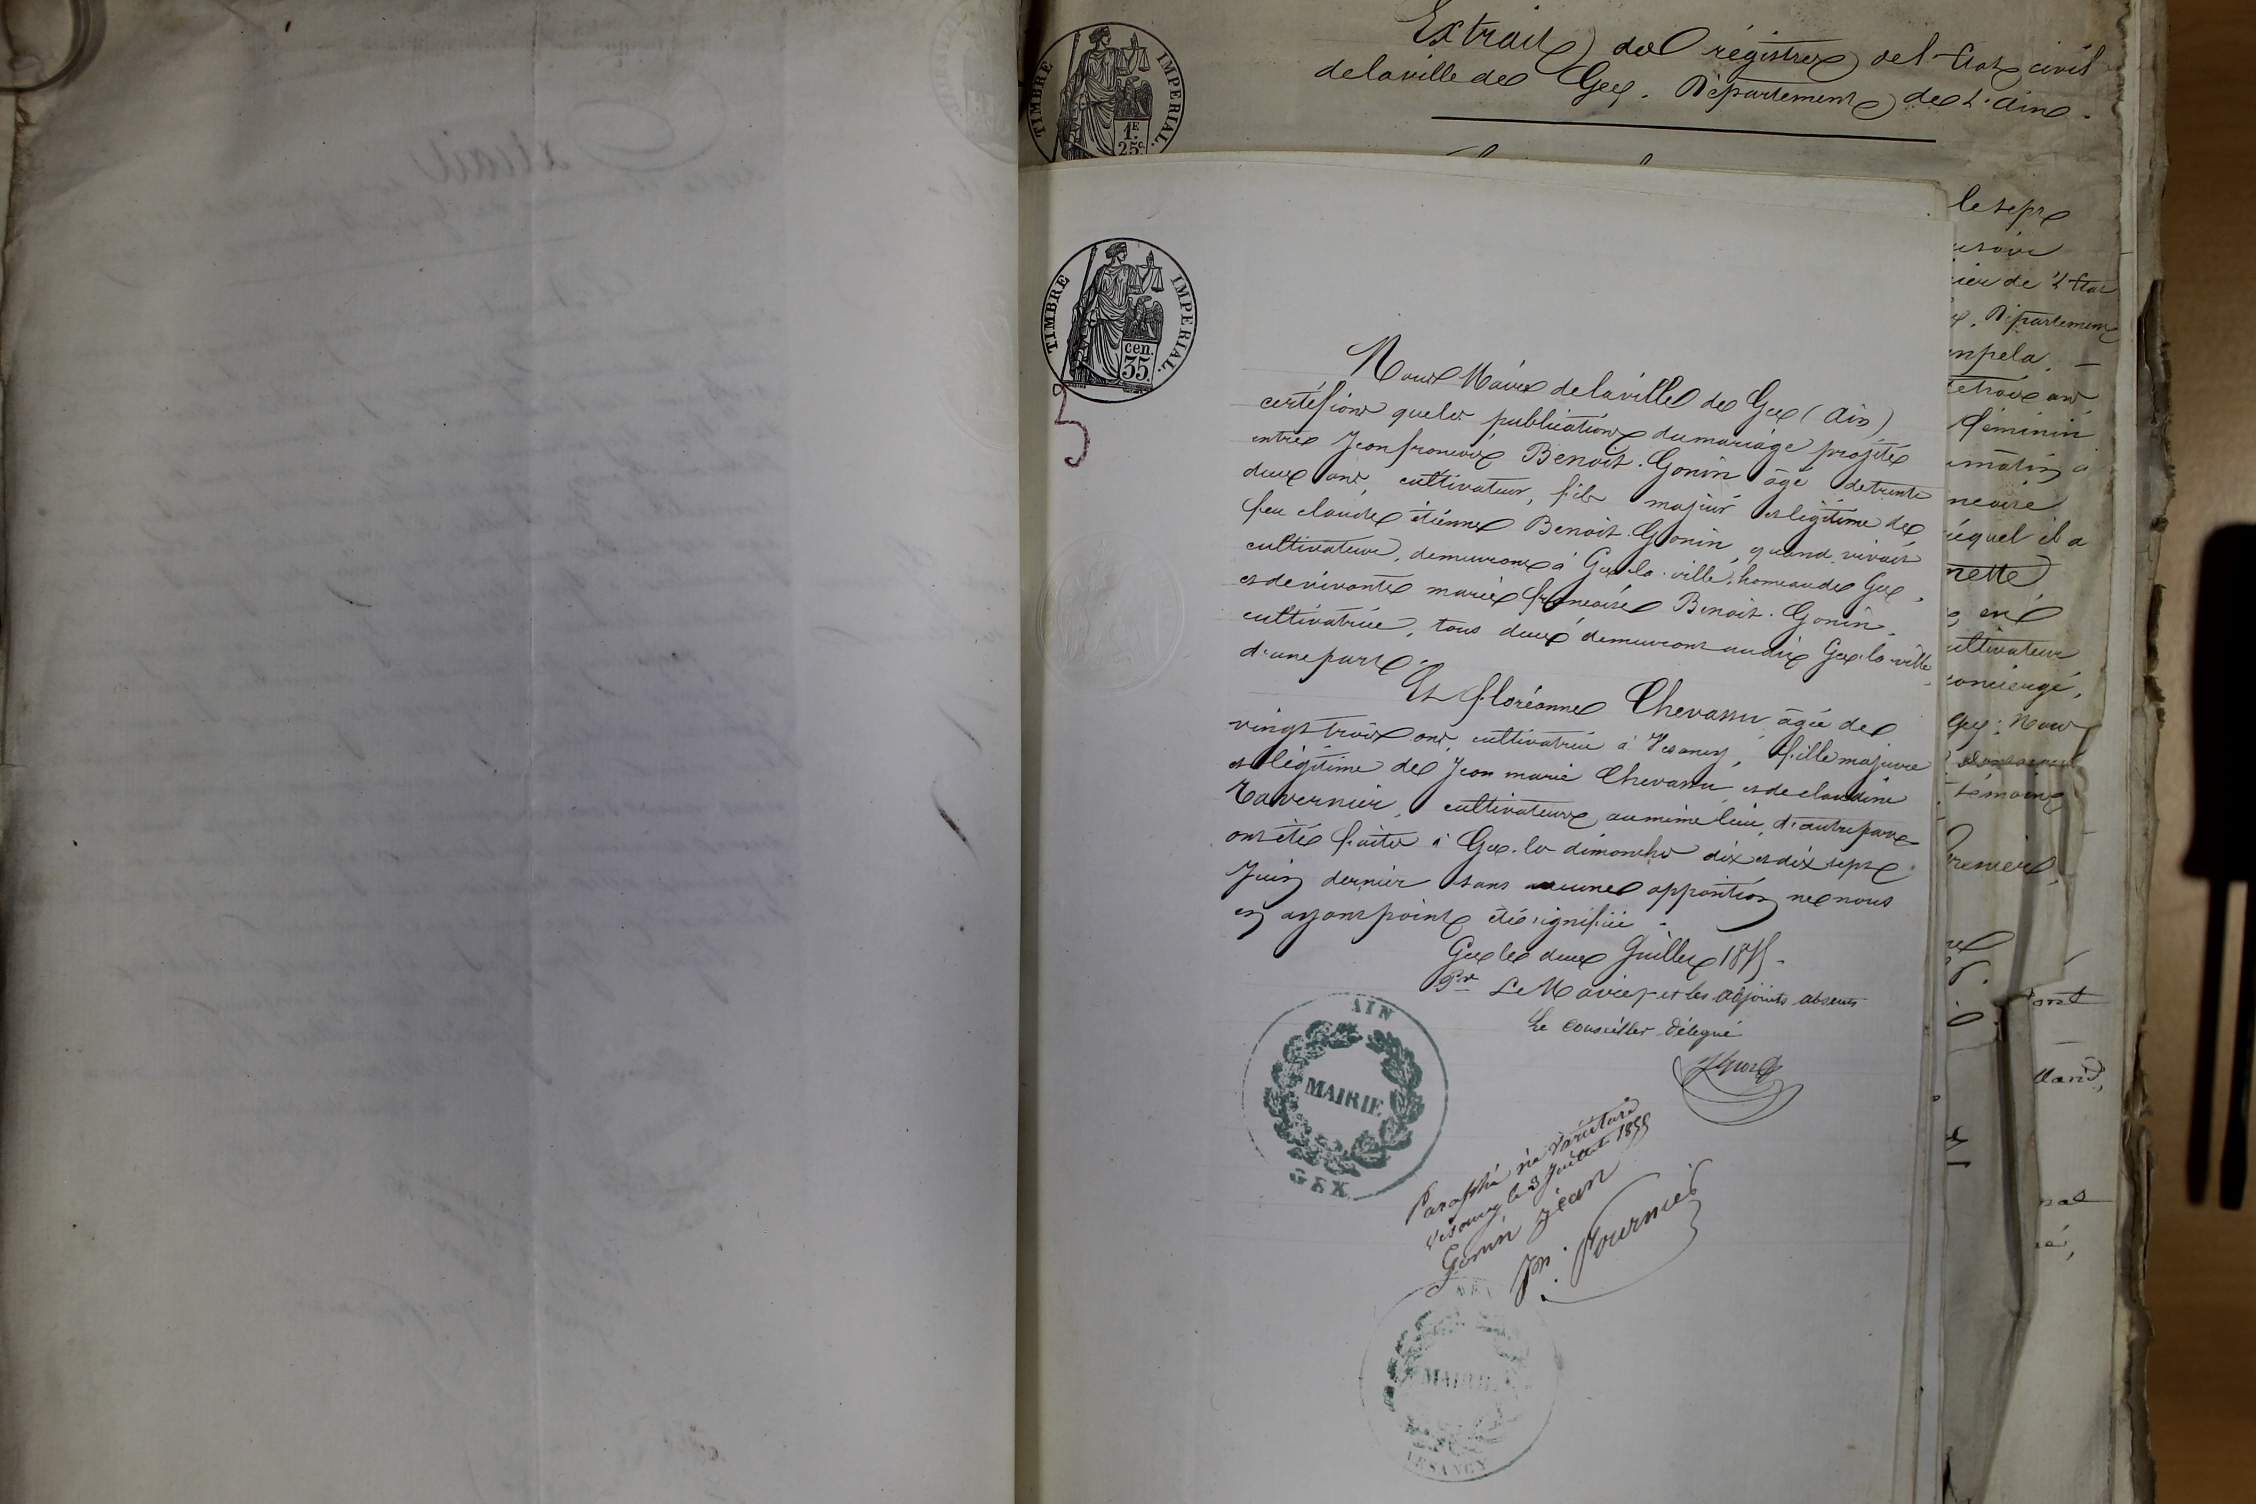 Extrait des régistres de l'État civil
de la ville de Gex. Département de L'ain.
TIMBRE IMPERIAL.
1F.
25c
le sept
cier de l'État
Département
féminin
lequel il a
en
cultivateur
concierge,
Gex; Nous
témoins
TIMBRE IMPERIAL.
cen.
35
Nous Maire de la ville de Gex (Ain)
certifions que les publications du mariage projeté
entre Jean francois Benoit-Gonin âgé de trente
deux ans, cultivateur, fils majeur et légitime de
feu claude étienne Benoit-Gonin, quand vivait
cultivateur, demeurant à Gex-la-ville, hameau de Gex,
et de vivante marie francoise Benoit-Gonin,
cultivatrice, tous deux demeurant audit Gex-la-ville,
d'une part.
Et floréanne Chevassu âgée de
vingt trois ans, cultivatrice à Vesancy, fille majeure
et légitime de Jean marie Chevassu et de claudine
Tavernier, cultivateurs au même lieu, d'autre part
ont été faites à Gex les dimanches dix et dix sept
Juin dernier sans aucune opposition ne nous
en ayant point été signifiée.
Gex le deux Juillet 1855.
Pr Le Maire et les adjoints absents
Le Conseiller délégué
AIN
MAIRIE
GEX
Paraphé ne Varietur
Vesancy le 3 Juillet 1855
Gonin Jean
Jn. Fournier
MAIRIE
VESANCY